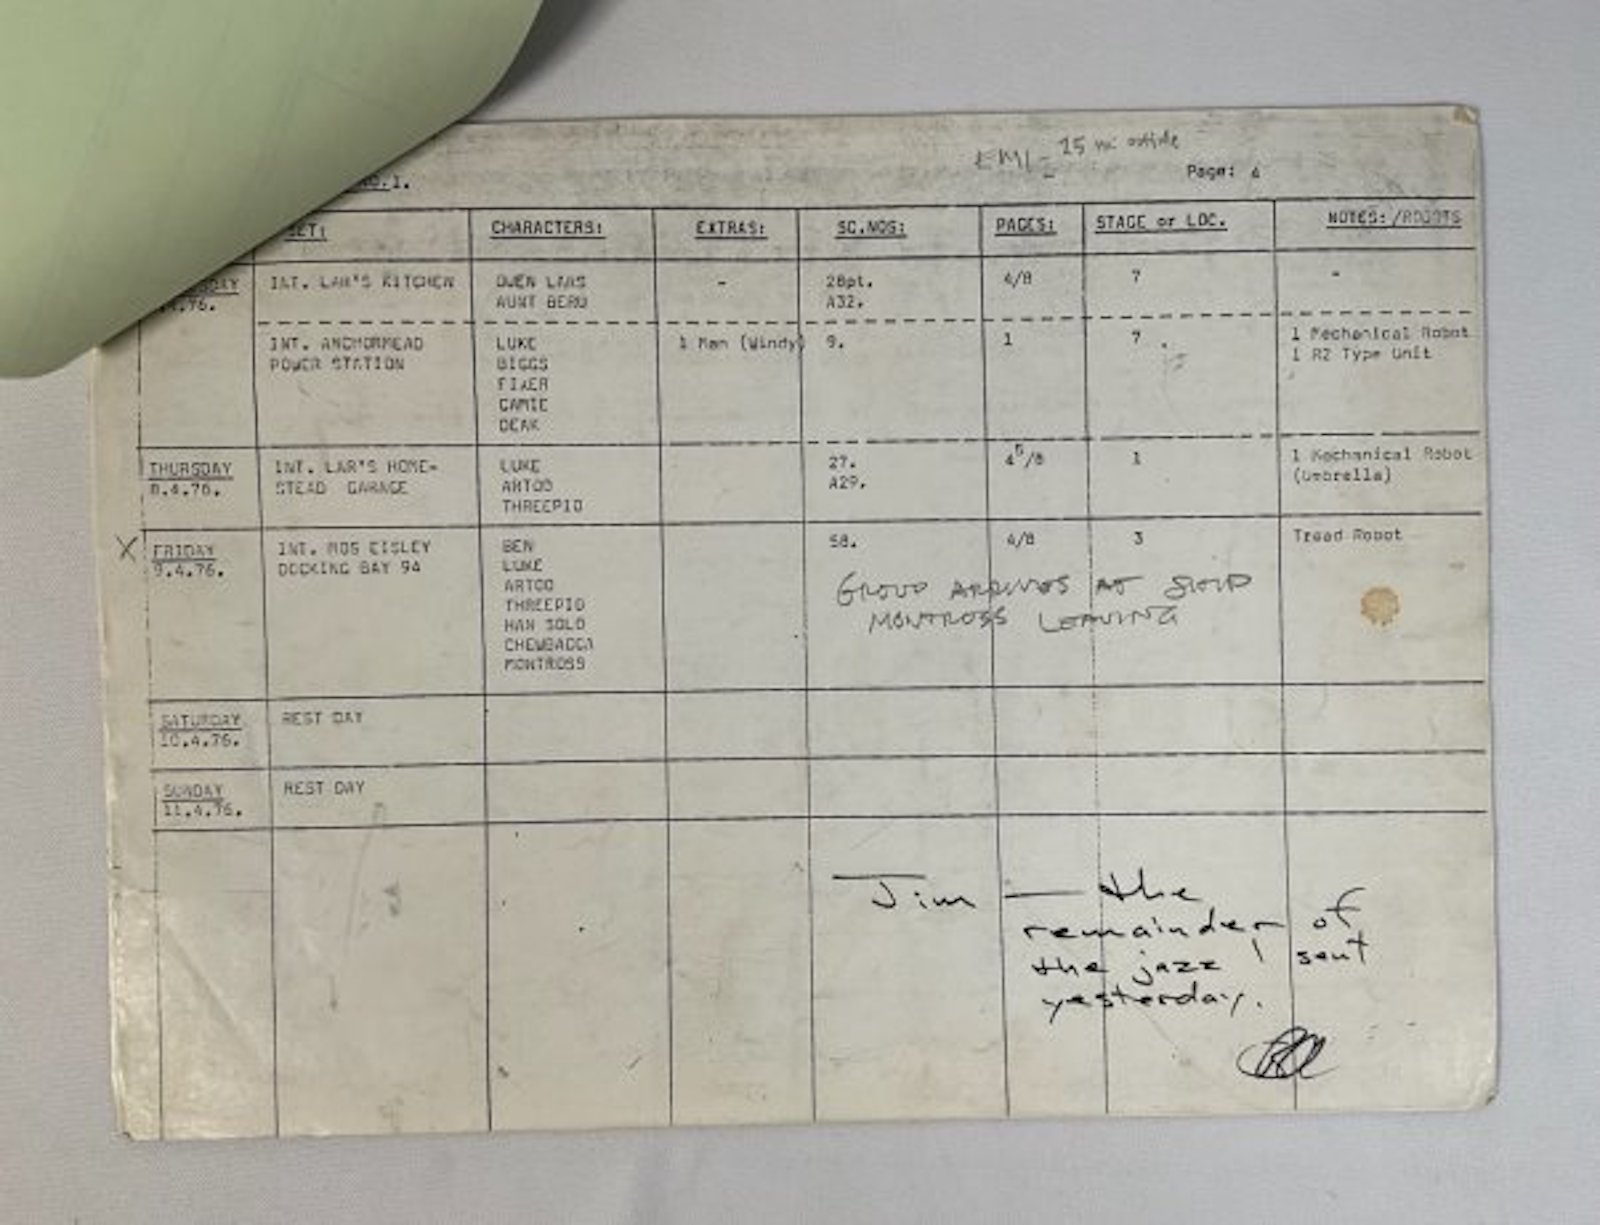 EMI - 25 mi outside
NO.1.
Page: 4
SET:
CHARACTERS:
EXTRAS:
SC.NOS:
PAGES:
STAGE or LOC.
NOTES:/ROBOTS
.4.76.
INT. LAR'S KITCHEN
OWEN LARS
AUNT BERU
-
28pt.
A32.
4/8
7
-
INT. ANCHORHEAD
POWER STATION
LUKE
BIGGS
FIXER
CAMIE
DEAK
1 Man (Windy)
9.
1
7
1 Mechanical Robot
1 R2 Type Unit
THURSDAY
8.4.76.
INT. LAR'S HOME-
STEAD GARAGE
LUKE
ARTOO
THREEPIO
27.
A29.
4 5/8
1
1 Mechanical Robot
(Umbrella)
X
FRIDAY
9.4.76.
INT. MOS EISLEY
DOCKING BAY 94
BEN
LUKE
ARTOO
THREEPIO
HAN SOLO
CHEWBACCA
MONTROSS
58.
4/8
3
Tread Robot
GROUP ARRIVES AT SHIP
MONTROSS LEAVING
SATURDAY
10.4.76.
REST DAY
SUNDAY
11.4.76.
REST DAY
Jim — the
remainder of
the jazz I sent
yesterday.